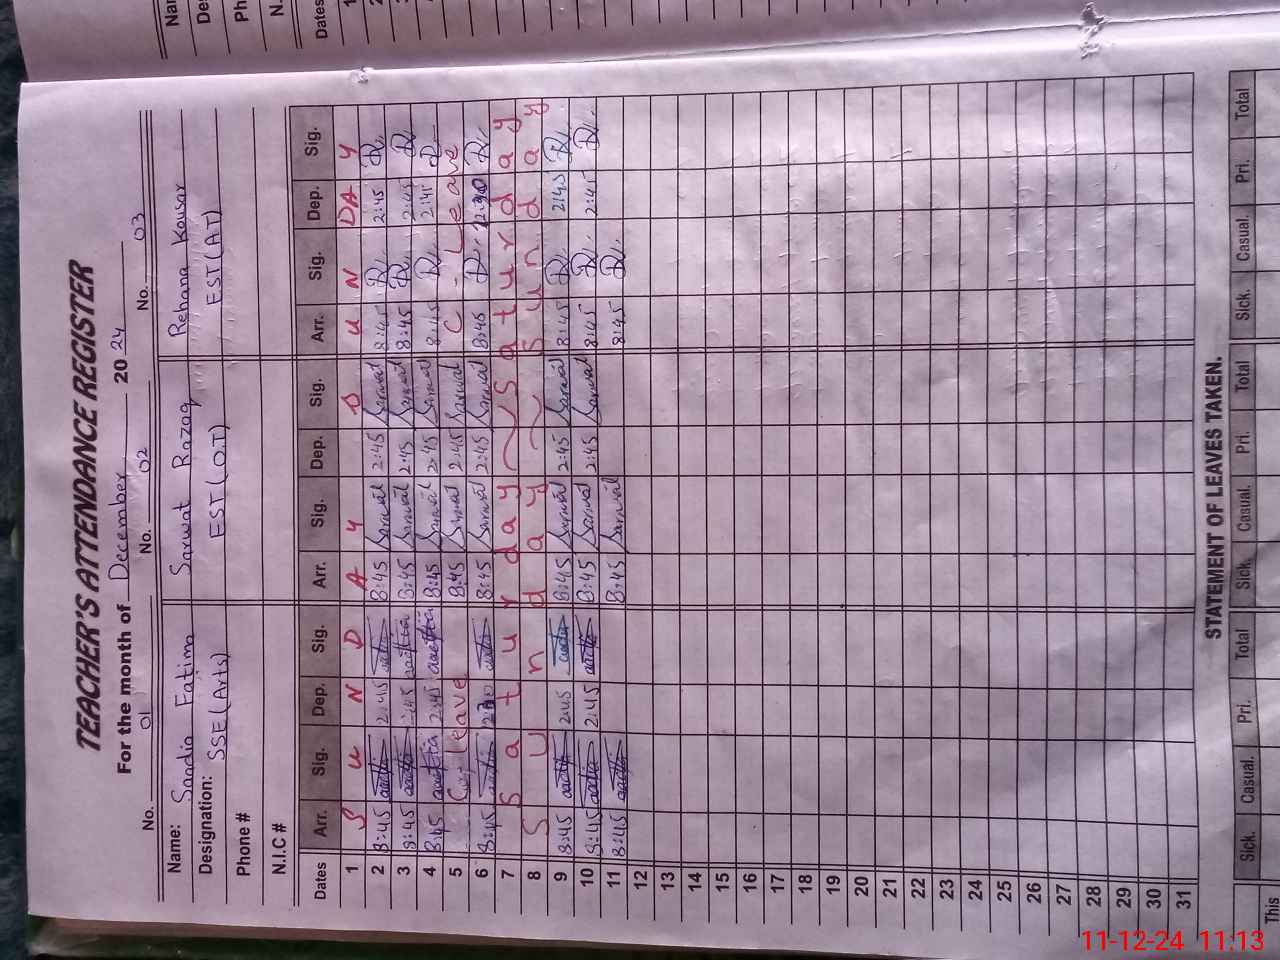 TEACHER'S ATTENDANCE REGISTER
For the month of December 2024
No. 01 No. 02 No. 03
Name: Saadia Fatima Sarwat Razaq Rehana Kousar
Designation: SSE (Arts) EST (O.T) EST (AT)
Phone #
N.I.C #
Dates Arr. Sig. Dep. Sig. Arr. Sig. Dep. Sig. Arr. Sig. Dep. Sig.
1 S U N D A Y S U N D A Y
2 8:45 2:45 8:45 Sarwat 2:45 Sarwat 8:45 2:45
3 8:45 8:45 Sarwat 2:45 Sarwat 8:45 2:45
4 8:45 2:45 8:45 Sarwat 2:45 Sarwat 8:45 2:45
5 C - Leave 8:45 Sarwat 2:45 Sarwat C - Leave
6 8:45 8:45 Sarwat 2:45 Sarwat 8:45
7 S a t u r d a y S a t u r d a y
8 S u n d a y S u n d a y
9 8:45 2:45 8:45 Sarwat 2:45 Sarwat 8:45 2:45
10 8:45 2:45 8:45 Sarwat 2:45 Sarwat 8:45 2:45
11 8:45 8:45 Sarwat 8:45
12
13
14
15
16
17
18
19
20
21
22
23
24
25
26
27
28
29
30
31
STATEMENT OF LEAVES TAKEN.
Sick. Casual. Pri. Total Sick. Casual. Pri. Total Sick. Casual. Pri. Total
This
Dates
1
2
11-12-24 11:13